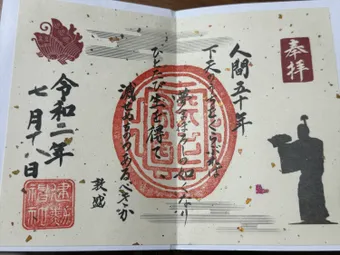 奉拝
人間五十年
下天のうちをくらぶれば
夢まぼろしの如くなり
ひとたび生を得て
滅せぬもののあるべきか
敦盛
令和二年
七月十八日